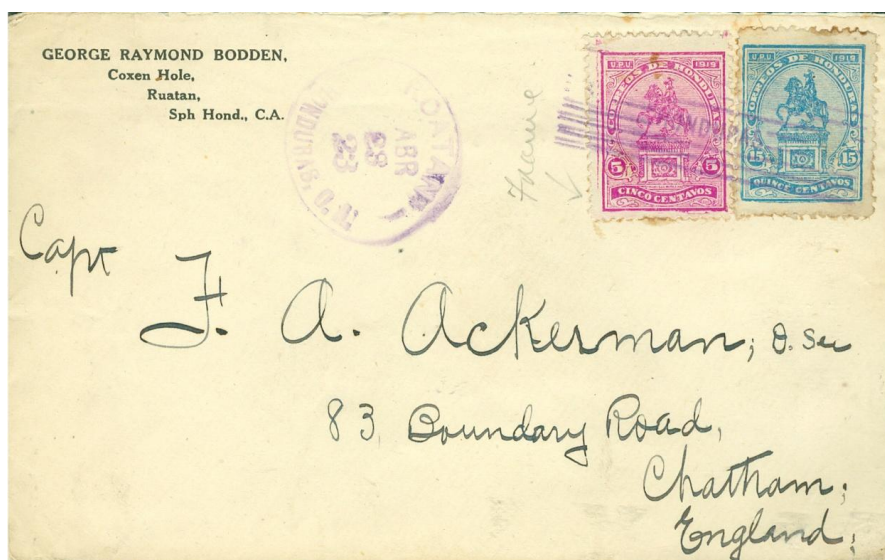 GEORGE RAYMOND BODDEN,
Coxen Hole,
Ruatan,
Sph Hond., C.A.
ROATAN
ABR
23
23
HONDURAS
Frame
U.P.U 1919
CORREOS DE HONDURAS
5 5
CINCO CENTAVOS
U.P.U 1919
CORREOS DE HONDURAS
15 15
QUINCE CENTAVOS
Capt
F. A. Ackerman; D. Sc
83 Boundary Road,
Chatham;
England;